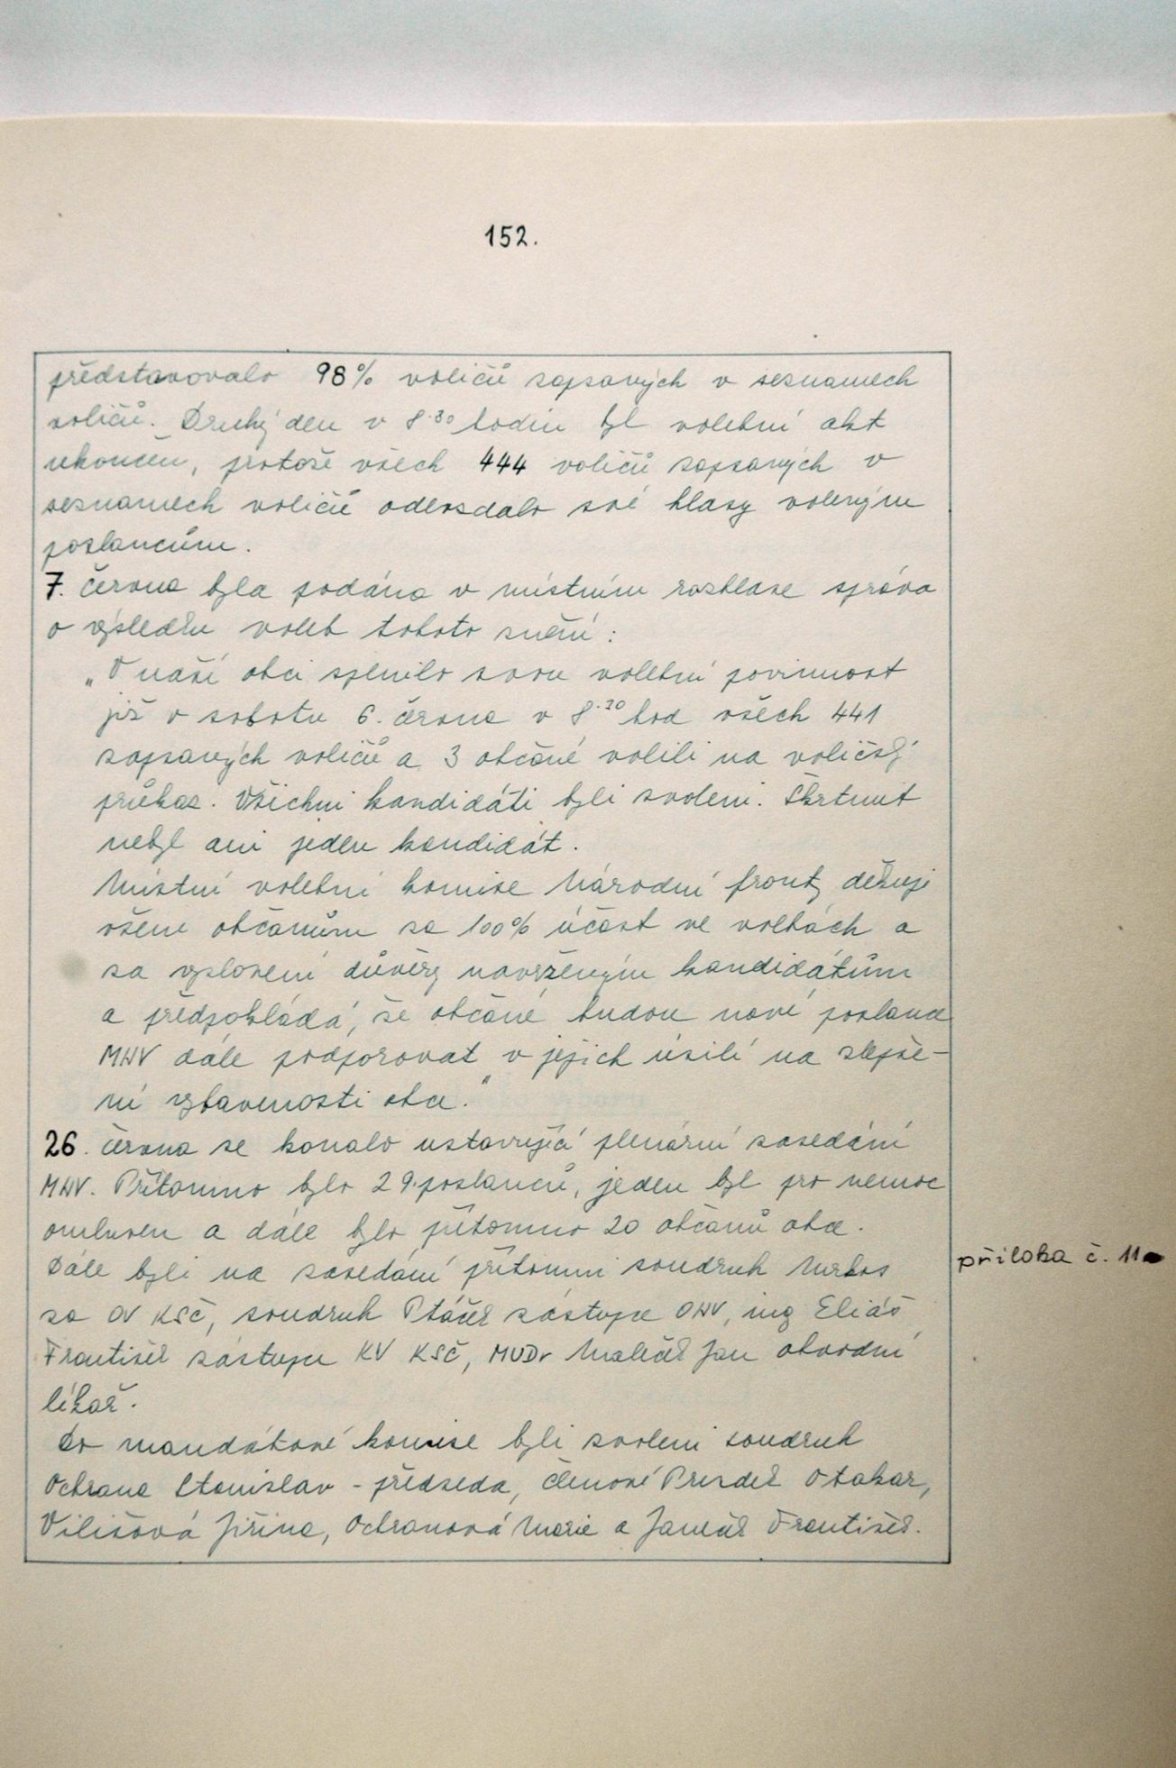 152.
představovalo 98% voličů zapsaných v seznamech
voličů. Druhý den v 8.30 hodin byl volební akt
ukončen, protože všech 444 voličů zapsaných v
seznamech voličů odevzdalo své hlasy voleným
poslancům.
7. června byla podána v místním rozhlase zpráva
o výsledku voleb tohoto znění:
„V naší obci splnilo svou volební povinnost
již v sobotu 6. června v 8.20 hod všech 441
zapsaných voličů a 3 občané volili na voličský
průkaz. Všichni kandidáti byli zvoleni. Škrtnut
nebyl ani jeden kandidát.
Místní volební komise Národní fronty děkuje
všem občanům za 100% účast ve volbách a
za vyslovení důvěry navrženým kandidátům
a předpokládá, že občané budou nové poslance
MNV dále podporovat v jejich úsilí na zlepše-
ní vybavenosti obce."
26. června se konalo ustavující plenární zasedání
MNV. Přítomno bylo 29 poslanců, jeden byl pro nemoc
omluven a dále bylo přítomno 20 občanů obce.
Dále byli na zasedání přítomni soudruh
za OV KSČ, soudruh Ptáček zástupce ONV, ing Eliáš
František zástupce KV KSČ, MUDr Jan obvodní
lékař.
příloha č. 11
Do mandátové komise byli zvoleni soudruh
Ochrana Stanislav - předseda, členové Otakar,
Vilišová Jiřina, Ochranová Marie a Janeček František.